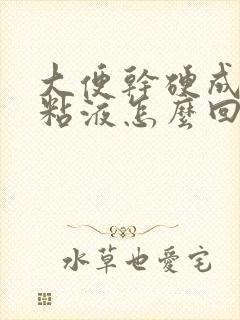 大便幹硬成
粘液怎麼回
水草也愛宅